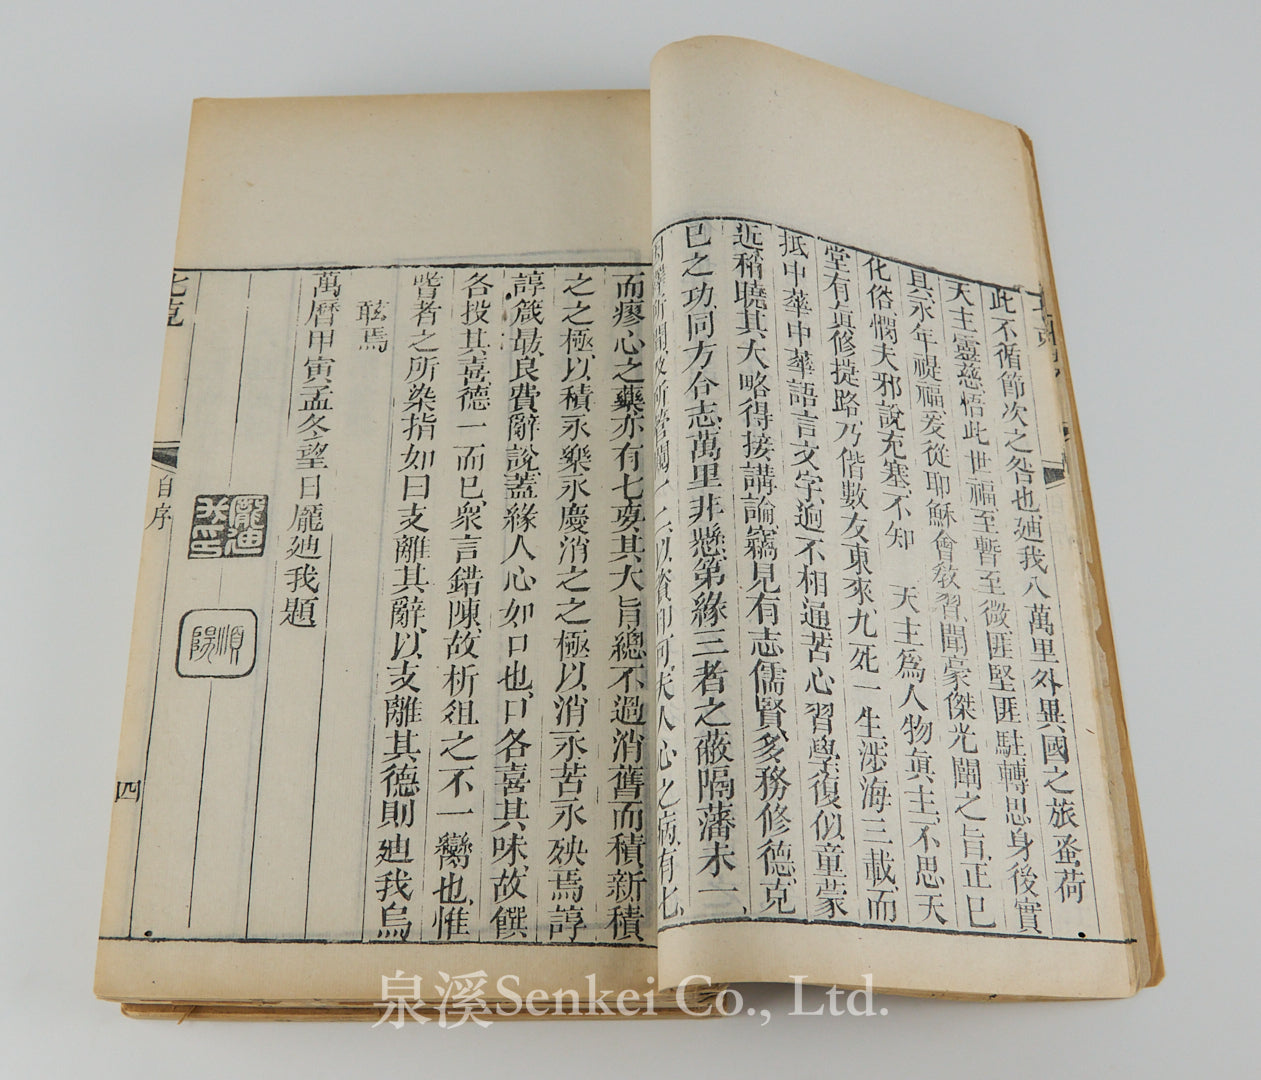 此不循節次之咎也廸我八萬里外異國之旅蚤荷
天主靈慈悟此世福至暫至微匪堅匪駐轉思身後實
具永年禔福爰從耶穌會敎習聞豪傑光闡之旨正己
化俗憫夫邪說充塞不知 天主爲人物眞主不思天
堂有眞修捷路乃偕數友東來九死一生涉海三載而
抵中華中華語言文字逈不相通苦心習學復似童蒙
近稍曉其大略得接講論竊見有志儒賢多務修德克
己之功同方合志萬里非懸第緣三者之蔽隔藩未一
資用何夫人心之病有七
而瘳心之藥亦有七要其大旨總不過消舊而積新積
之之極以積永樂永慶消之之極以消永苦永殃焉諄
諄箴最良費辭說蓋緣人心如口也口各喜其味故饌
各投其喜德一而已衆言錯陳故析俎之不一臠也惟
嗜者之所染指如曰支離其辭以支離其德則廸我烏
敢焉
萬曆甲寅孟冬望日龐廸我題
龐迪
我印
順陽
七克
自序
四
泉溪Senkei Co., Ltd.